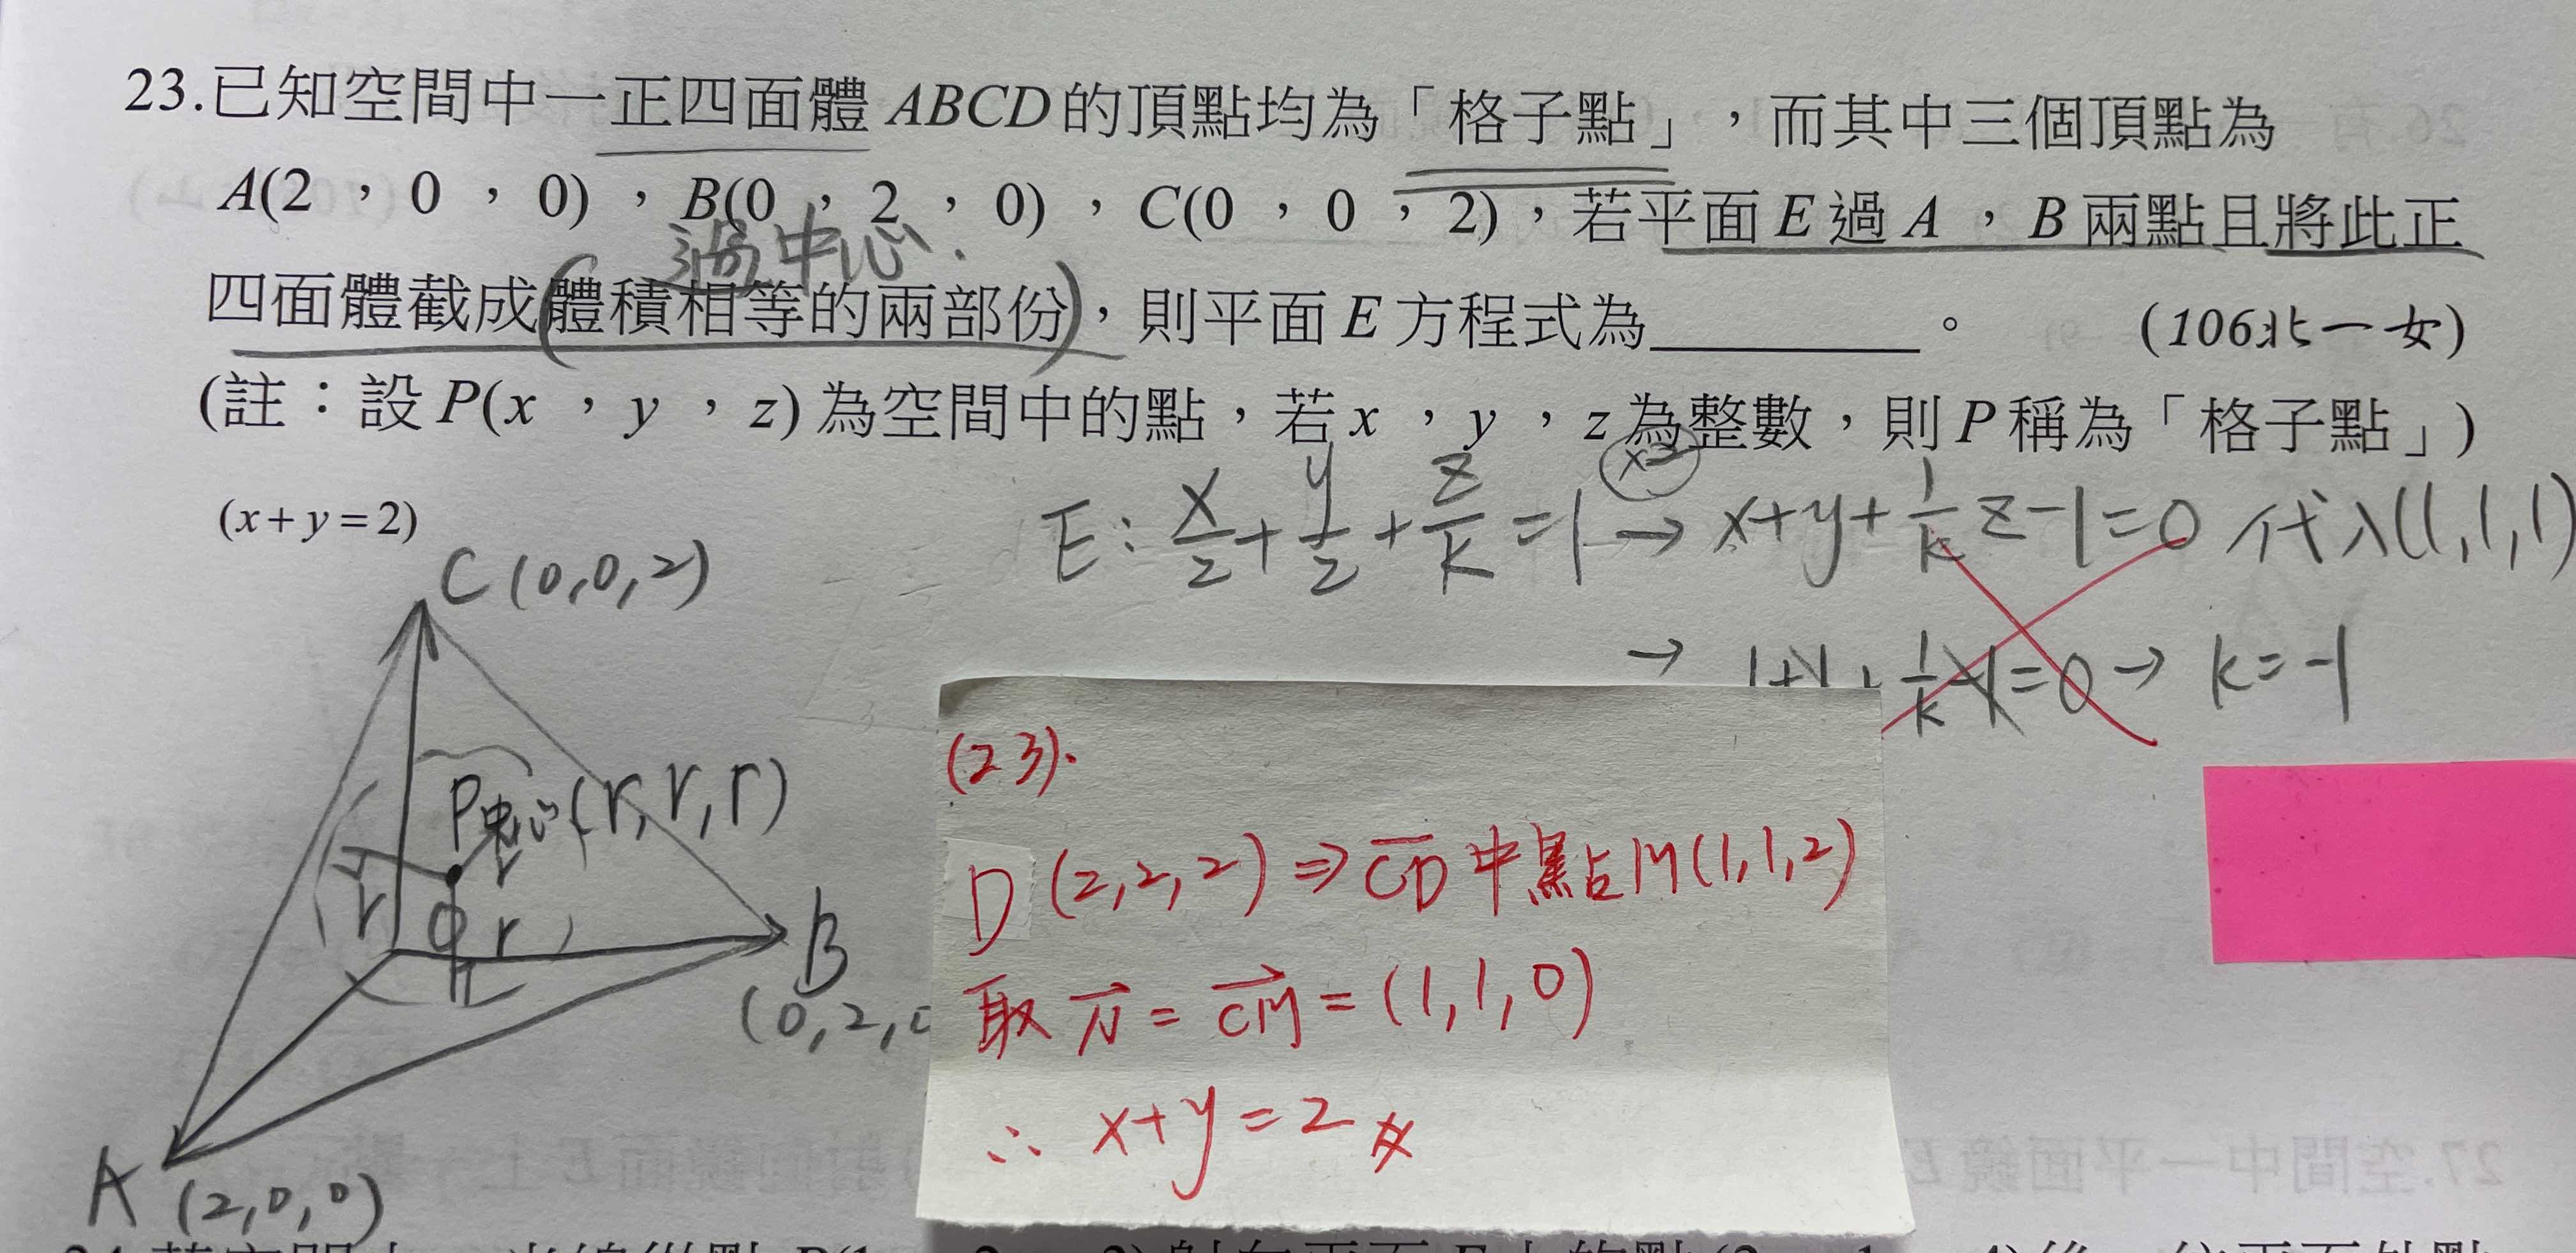 23.已知空間中一正四面體 ABCD 的頂點均為「格子點」，而其中三個頂點為
A(2 ， 0 ， 0) ， B(0 ， 2 ， 0) ， C(0 ， 0 ， 2)，若平面 E 過 A ， B 兩點且將此正
過中心.
四面體截成(體積相等的兩部份)，則平面 E 方程式為________。 (106北一女)
(註：設 P(x ， y ， z) 為空間中的點，若 x ， y ， z 為整數，則 P 稱為「格子點」)
(x+y=2)
E: x/2 + y/2 + z/k = 1 (×2) → x+y+1/k z-1=0 代入(1,1,1)
→ 1+1+1/k-1=0 → k=-1
C(0,0,2)
P(r,r,r)
r
r
r
B
(0,2,
A (2,0,0)
(23).
D(2,2,2) ⇒ CD中點M(1,1,2)
取 n = CM = (1,1,0)
∴ x+y=2
27.空間中一平面鏡 E